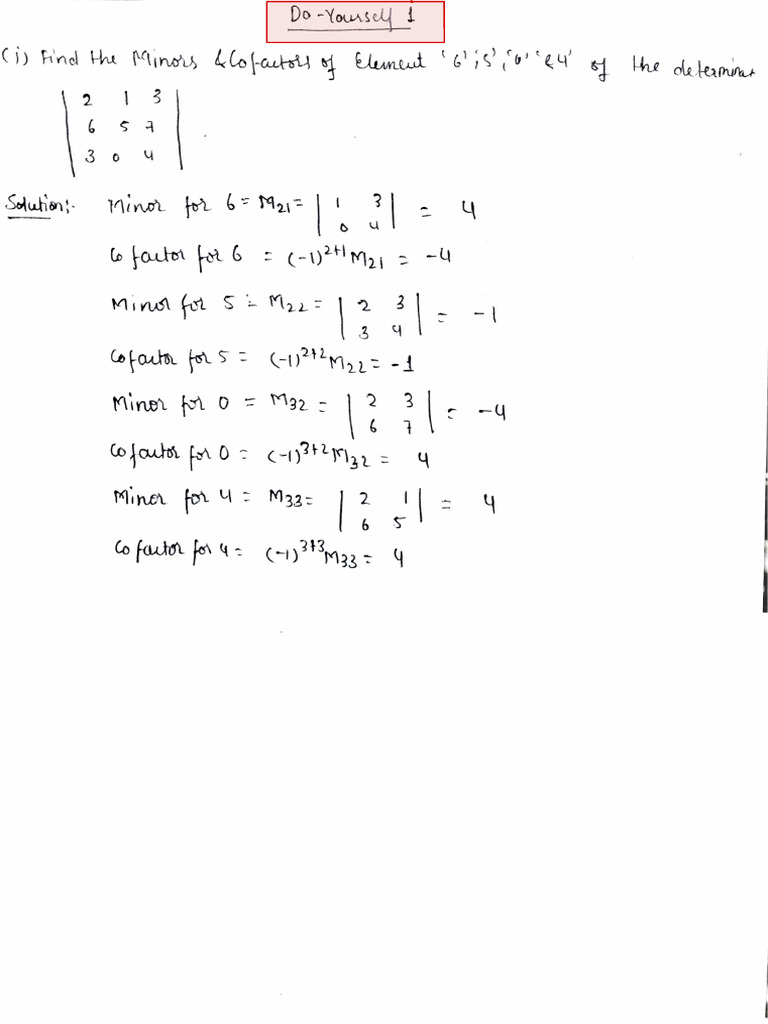 Do-Yourself 1
(i) Find the Minors & Cofactors of Element '6', '5', '0' & '4' of the determinant
| 2 1 3 |
| 6 5 7 |
| 3 0 4 |
Solution:- Minor for 6 = M21 = | 1 3 | = 4
| 0 4 |
Cofactor for 6 = (-1)^2+1 M21 = -4
Minor for 5 = M22 = | 2 3 | = -1
| 3 4 |
Cofactor for 5 = (-1)^2+2 M22 = -1
Minor for 0 = M32 = | 2 3 | = -4
| 6 7 |
Cofactor for 0 = (-1)^3+2 M32 = 4
Minor for 4 = M33 = | 2 1 | = 4
| 6 5 |
Cofactor for 4 = (-1)^3+3 M33 = 4